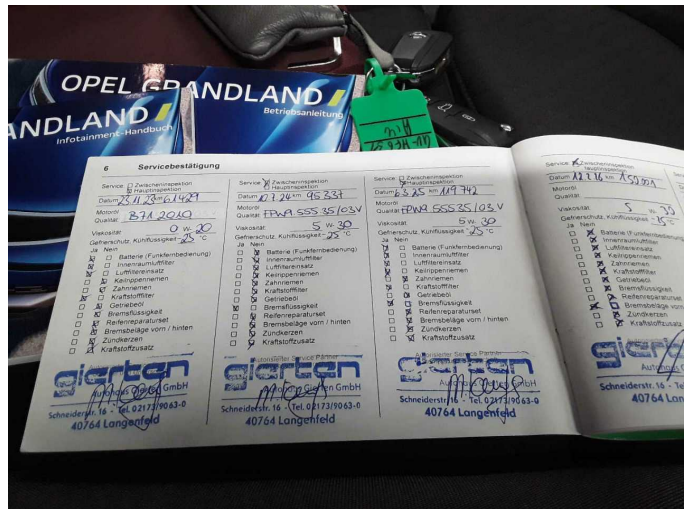 OPEL GRANDLAND
Betriebsanleitung
ANDLAND
Infotainment-Handbuch
6 Servicebestätigung
Service Zwischeninspektion
Hauptinspektion
Datum 23.11.23 km 61429
Motoröl
Qualität 871 2010
Viskosität 0 W- 20
Gefrierschutz, Kühlflüssigkeit -25 °C
Ja Nein
Batterie (Funkfernbedienung)
Innenraumluftfilter
Luftfiltereinsatz
Keilrippenriemen
Zahnriemen
Kraftstofffilter
Getriebeöl
Bremsflüssigkeit
Reifenreparaturset
Bremsbeläge vorn / hinten
Zündkerzen
Kraftstoffzusatz
gierten
Autohaus Gierten GmbH
Schneiderstr. 16 - Tel. 02173/9063-0
40764 Langenfeld
Service Zwischeninspektion
Hauptinspektion
Datum 10.7.24 km 95337
Motoröl
Qualität FPW9 55535/03V
Viskosität 5 W- 30
Gefrierschutz, Kühlflüssigkeit -25 °C
Ja Nein
Batterie (Funkfernbedienung)
Innenraumluftfilter
Luftfiltereinsatz
Keilrippenriemen
Zahnriemen
Kraftstofffilter
Getriebeöl
Bremsflüssigkeit
Reifenreparaturset
Bremsbeläge vorn / hinten
Zündkerzen
Kraftstoffzusatz
Autorisierter Service Partner
gierten
Autohaus Gierten GmbH
Schneiderstr. 16 - Tel. 02173/9063-0
40764 Langenfeld
Service Zwischeninspektion
Hauptinspektion
Datum 6.3.25 km 119742
Motoröl
Qualität FPW9 55535/03V
Viskosität 5 W- 30
Gefrierschutz, Kühlflüssigkeit -25 °C
Ja Nein
Batterie (Funkfernbedienung)
Innenraumluftfilter
Luftfiltereinsatz
Keilrippenriemen
Zahnriemen
Kraftstofffilter
Getriebeöl
Bremsflüssigkeit
Reifenreparaturset
Bremsbeläge vorn / hinten
Zündkerzen
Kraftstoffzusatz
Autorisierter Service Partner
gierten
Autohaus Gierten GmbH
Schneiderstr. 16 - Tel. 02173/9063-0
40764 Langenfeld
Service Zwischeninspektion
Hauptinspektion
Datum km
Motoröl
Qualität
Viskosität 5 W-
Gefrierschutz, Kühlflüssigkeit -25
Ja Nein
Batterie (Funkfernbedienung)
Innenraumluftfilter
Luftfiltereinsatz
Keilrippenriemen
Zahnriemen
Kraftstofffilter
Getriebeöl
Bremsflüssigkeit
Reifenreparaturset
Bremsbeläge vo
Zündkerzen
Kraftstoffzusatz
Autohaus
Schneiderstr. 16 - Te
40764 Lan